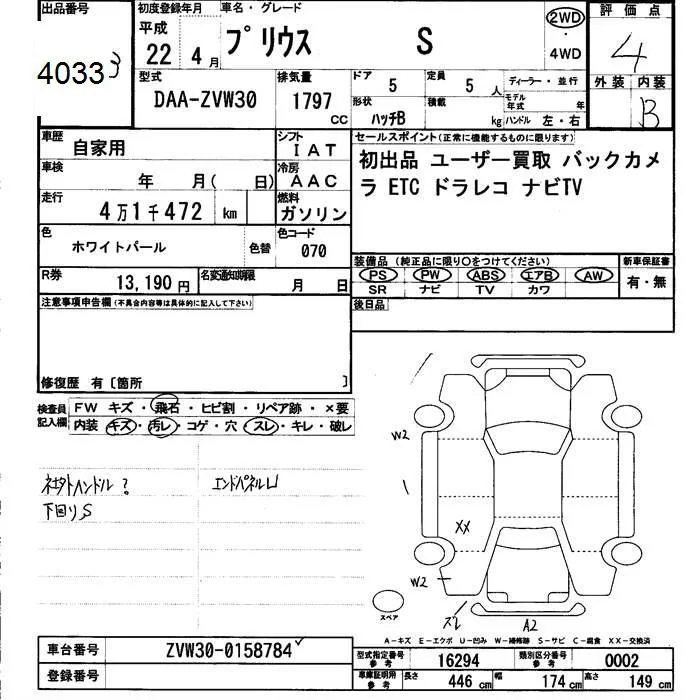 出品番号 初度登録年月 車名・グレード 2WD 評価点
平成 プリウス S ・
22 4 月 4WD 4
40333
型式 排気量 ドア 5 定員 5 人 ディーラー・並行 外装 内装
DAA-ZVW30 1797 CC 形状 ハッチB 積載 kg モデル年式 年 B
ハンドル 左・右
車歴 自家用 シフト IAT セールスポイント(正常に機能するものに限ります)
車検 年 月( 日) 冷房 AAC 初出品 ユーザー買取 バックカメ
走行 4万1千472 km 燃料 ガソリン ラ ETC ドラレコ ナビTV
色 ホワイトパール 色替 色コード 070
装備品(純正品に限り○をつけてください) 新車保証書
R券 13,190円 名変通知期限 月 日 PS PW ABS エアB AW 有・無
SR ナビ TV カワ
注意事項申告欄(不具合内容等は具体的に記入して下さい) 後日品
修復歴 有〔箇所 〕
検査員 FW キズ・飛石・ヒビ割・リペア跡・×要
記入欄 内装 キズ・汚レ・コゲ・穴・スレ・キレ・破レ
W2
ハンドル? エンドパネルU
下回りS
1
XX
W2
スレ A2
スペア
A-キズ E-エクボ U-凹み W-補修跡 S-サビ C-腐食 XX-交換済
車台番号 ZVW30-0158784
登録番号
型式指定番号 参考 16294 類別区分番号 参考 0002
車庫証明用 参考 長さ 446 cm 幅 174 cm 高さ 149 cm